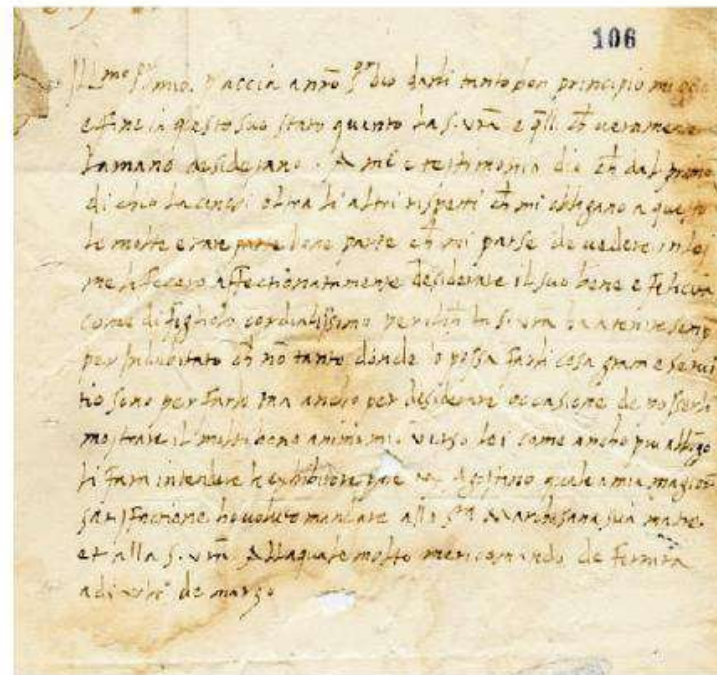 106
Ill.mo S.r mio. Piaccia a nr̃o S.or dio darli tanto bon principio
e fine in questo suo stato quanto la S. vrã e q̃lli ch̃ veramente
lamano desiderano. A me è testimonio dio ch̃ dal primo
di ch'io la oltra li altri rispetti ch̃ mi obligano a questo
le molte e rare parte bone parte ch̃ mi parse de vedere in lei
me la fecero affectionatamente desiderare il suo bene e felicita
come di figliolo cordialissimo la S. vrã ha a tenire
per indubitato ch̃ nõ tanto dónde io possa farli cosa grata e servi
tio sono per farlo ma ancho per desiderare occasione de posserli
mostrare il molto bono animo mio verso lei come ancho piu allõgo
li fara intendere exhibitore Agostino quale a mia magior
satisfactione ho voluto mandare alla S.ra Marchesana sua matre
et alla S. vrã Alla quale molto mi ricomando de Ferrara
a di de marzo